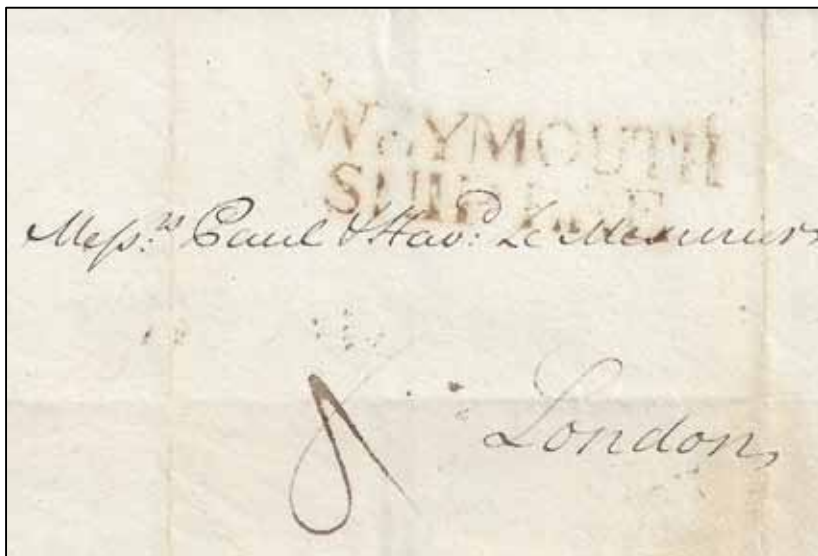 WEYMOUTH
SHIP LRE
Mess.rs Paul & Hav.d Le Mesurier
8
London,